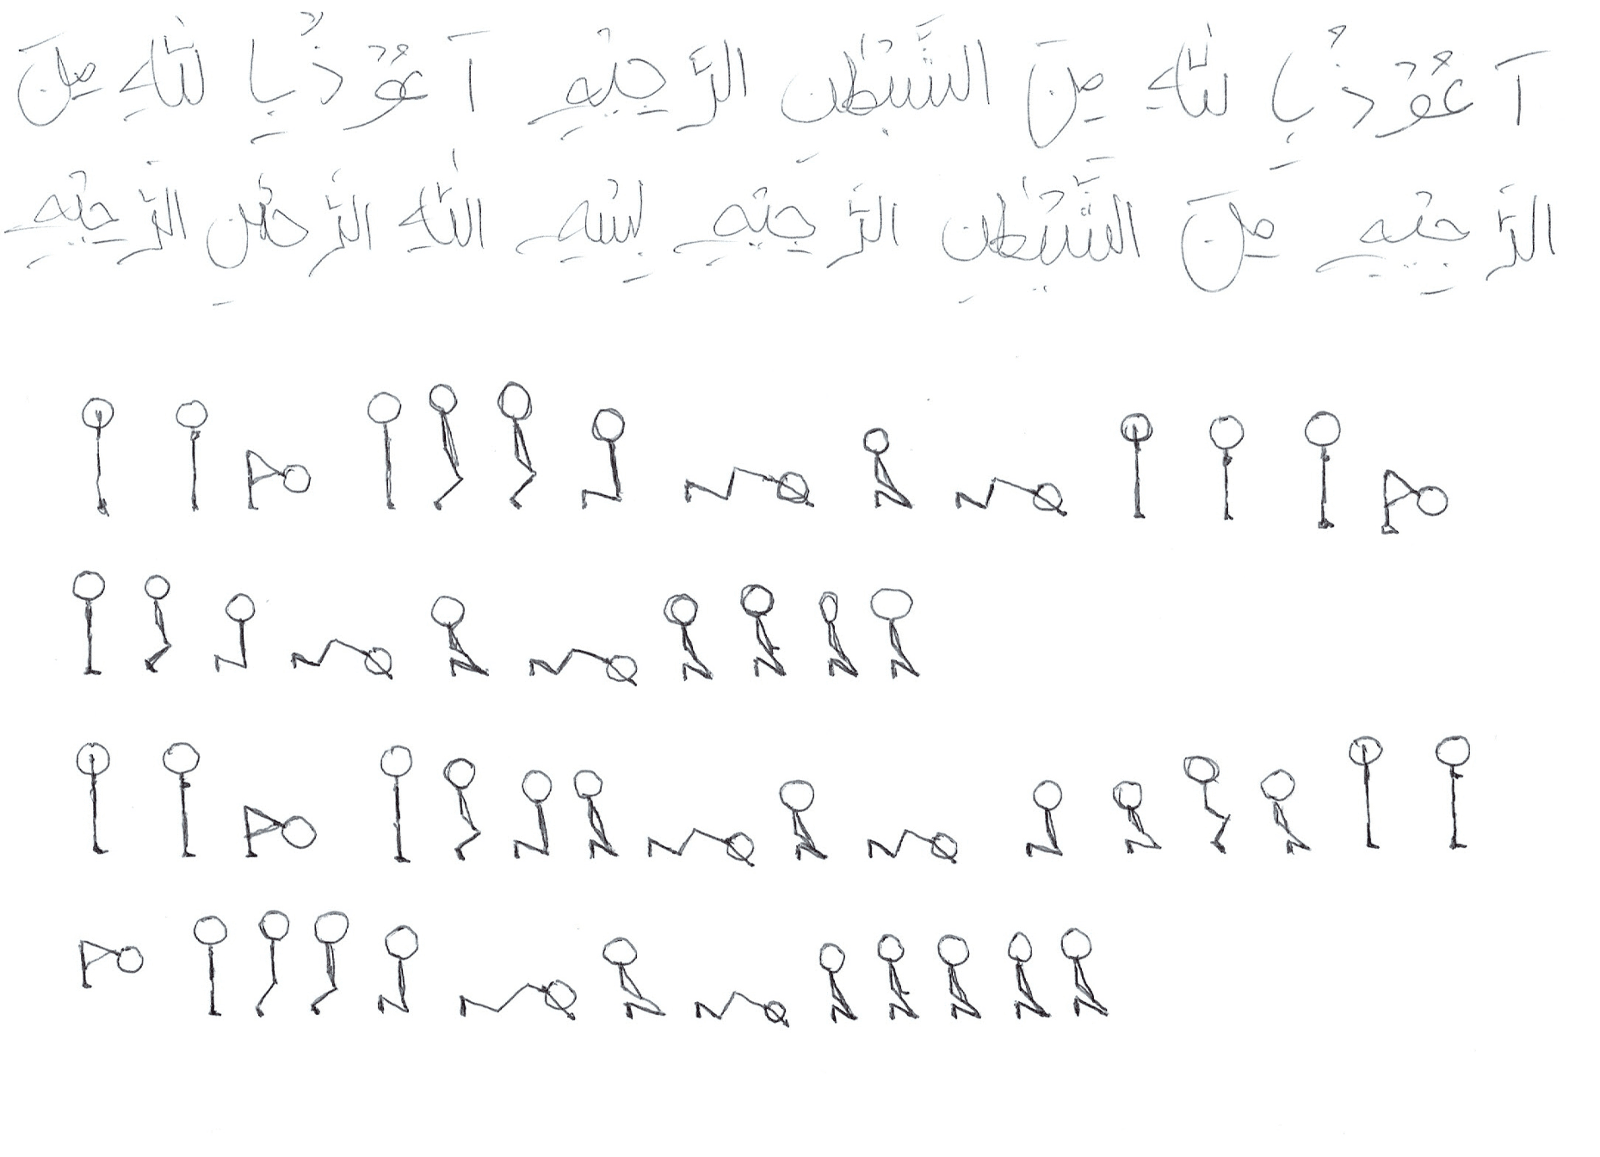 اَعُوْذُ بِا للّٰهِ مِنَ الشَّيْطٰنِ الرَّجِيْمِ اَعُوْذُ بِا للّٰهِ مِنَ
الرَّجِيْمِ مِنَ الشَّيْطٰنِ الرَّجِيْمِ بِسْمِ اللّٰهِ الرَّحْمٰنِ الرَّحِيْمِ